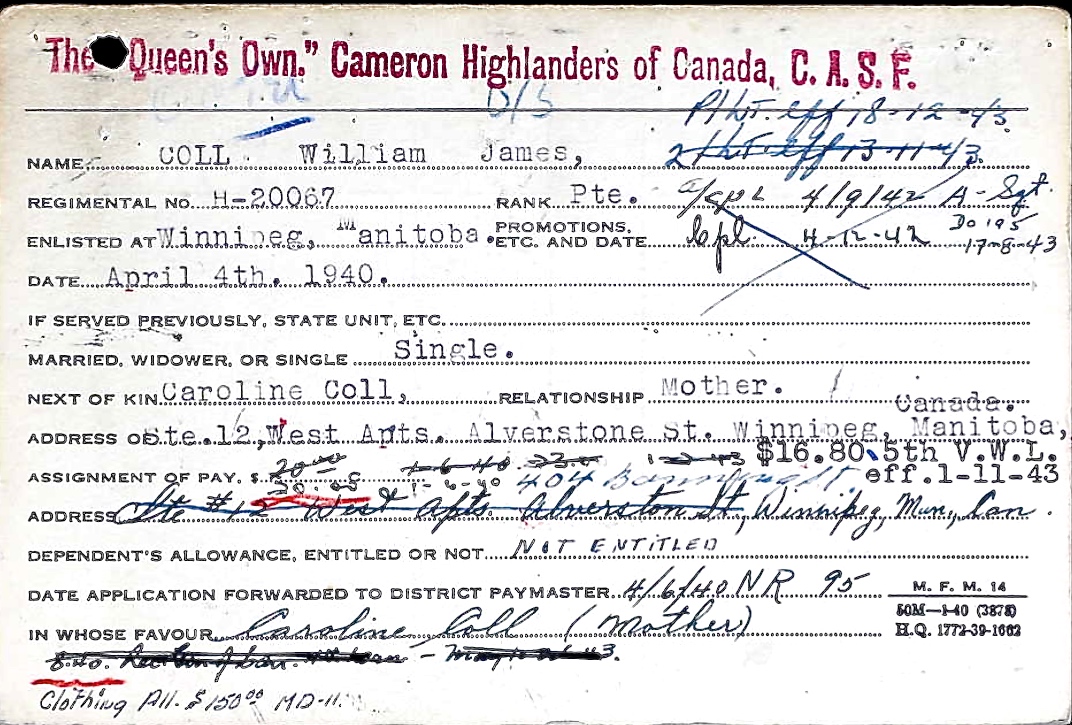 The "Queen's Own." Cameron Highlanders of Canada, C. A. S. F.
D/S
eff 18-12-43
eff 13-11-43
NAME COLL William James,
REGIMENTAL NO. H-20067 RANK Pte. a/cpl 4/9/42 A-Sgt.
DO 195
17-8-43
ENLISTED AT Winnipeg, Manitoba. PROMOTIONS, ETC. AND DATE Cpl. 4-12-42
DATE April 4th. 1940.
IF SERVED PREVIOUSLY, STATE UNIT, ETC.
MARRIED, WIDOWER, OR SINGLE Single.
NEXT OF KIN Caroline Coll, RELATIONSHIP Mother.
Canada.
ADDRESS OF Ste.12, West Apts. Alverstone St. Winnipeg, Manitoba,
$16.80 5th V.W.L.
eff.1-11-43
ASSIGNMENT OF PAY. $ 20.00 1-6-40
404
ADDRESS Ste #12 West Apts. Alverston St., Winnipeg, Man., Can.
DEPENDENT'S ALLOWANCE, ENTITLED OR NOT NOT ENTITLED
DATE APPLICATION FORWARDED TO DISTRICT PAYMASTER 4/6/40 NR 95
M. F. M. 14
50M—1-40 (3878)
H.Q. 1772-39-1662
IN WHOSE FAVOUR Caroline Coll (Mother)
Clothing All. $150.00 MD-11.